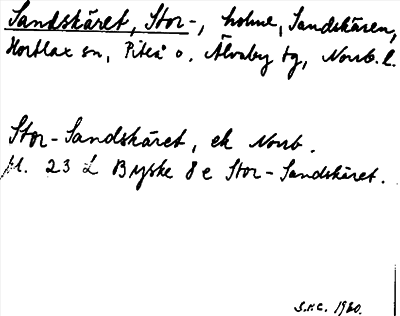 Sandskäret, Stor-, holme, Sandskären,
Hortlax sn, Piteå o. Älvsby tg, Norrb. l.
Stor-Sandskäret, ek Norrb.
M. 23 L Byske 8 e Stor-Sandskäret.
1960.